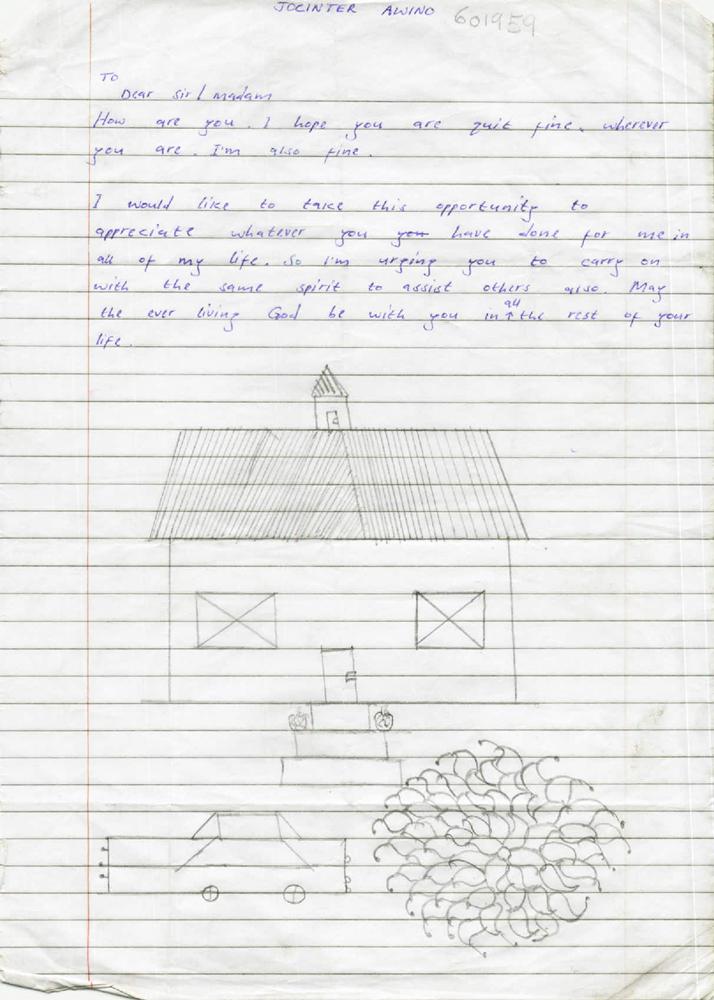 JOCINTER AWINO 601959
To
Dear sir / madam
How are you. I hope you are quit fine. wherever
you are. I'm also fine.
I would like to take this opportunity to
appreciate whatever you you have done for me in
all of my life. So i'm urging you to carry on
with the same spirit to assist others also. May
the ever living God be with you in all the rest of your
life.